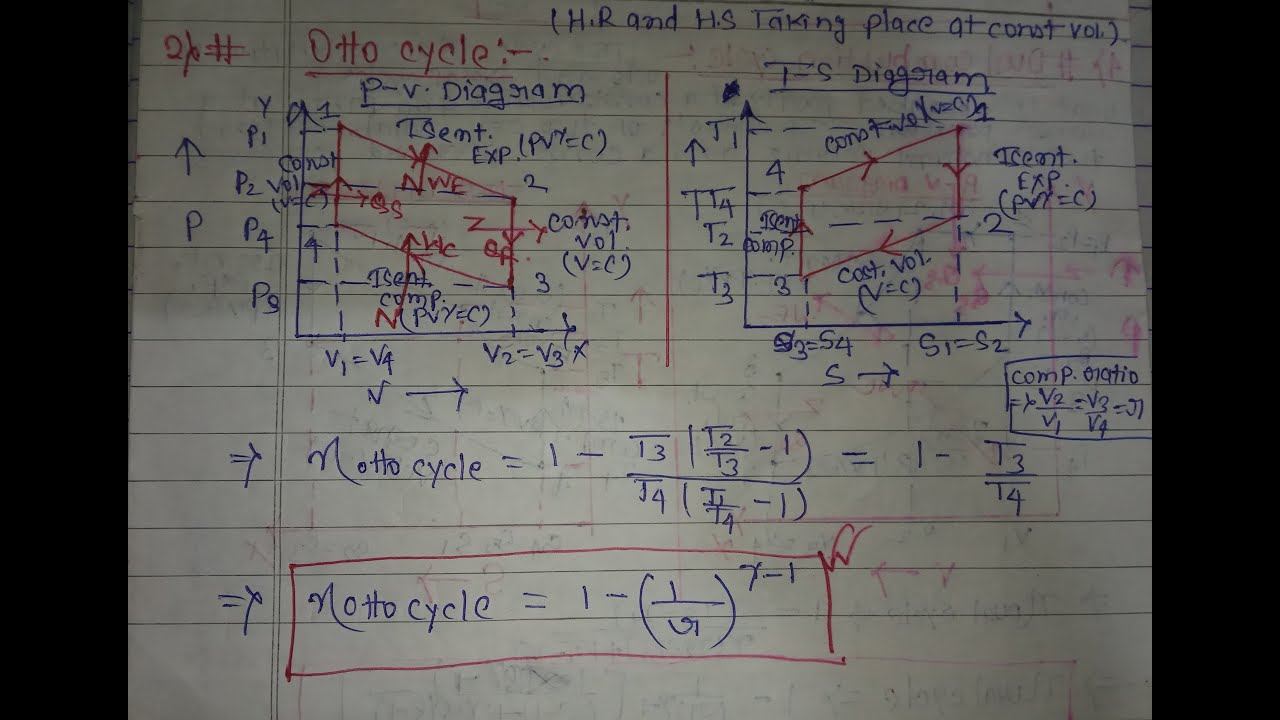 (H.R and H.S Taking place at const vol.)
2) # Otto cycle:-
P-V. Diagram
Y
1
P1
P2
P4
P3
P
const
vol.
(V=C)
QS
Isent.
EXP. (PVγ=C)
WE
2
const.
vol.
(V=C)
4
WC
Isent.
comp.
(PVγ=C)
3
V1=V4
V2=V3 X
V
T-S Diagram
T1
T4
T2
T3
4
const vol (V=C) 1
Isent.
EXP.
(PVγ=C)
2
Isent
comp.
3
Cost. vol.
(V=C)
S3=S4
S1=S2
S →
comp. ratio
⇒ V2/V1 = V3/V4 = r
⇒ η otto cycle = 1 - T3 (T2/T3 - 1) / T4 (T1/T4 - 1) = 1 - T3/T4
⇒ η otto cycle = 1 - (1/r)^γ-1